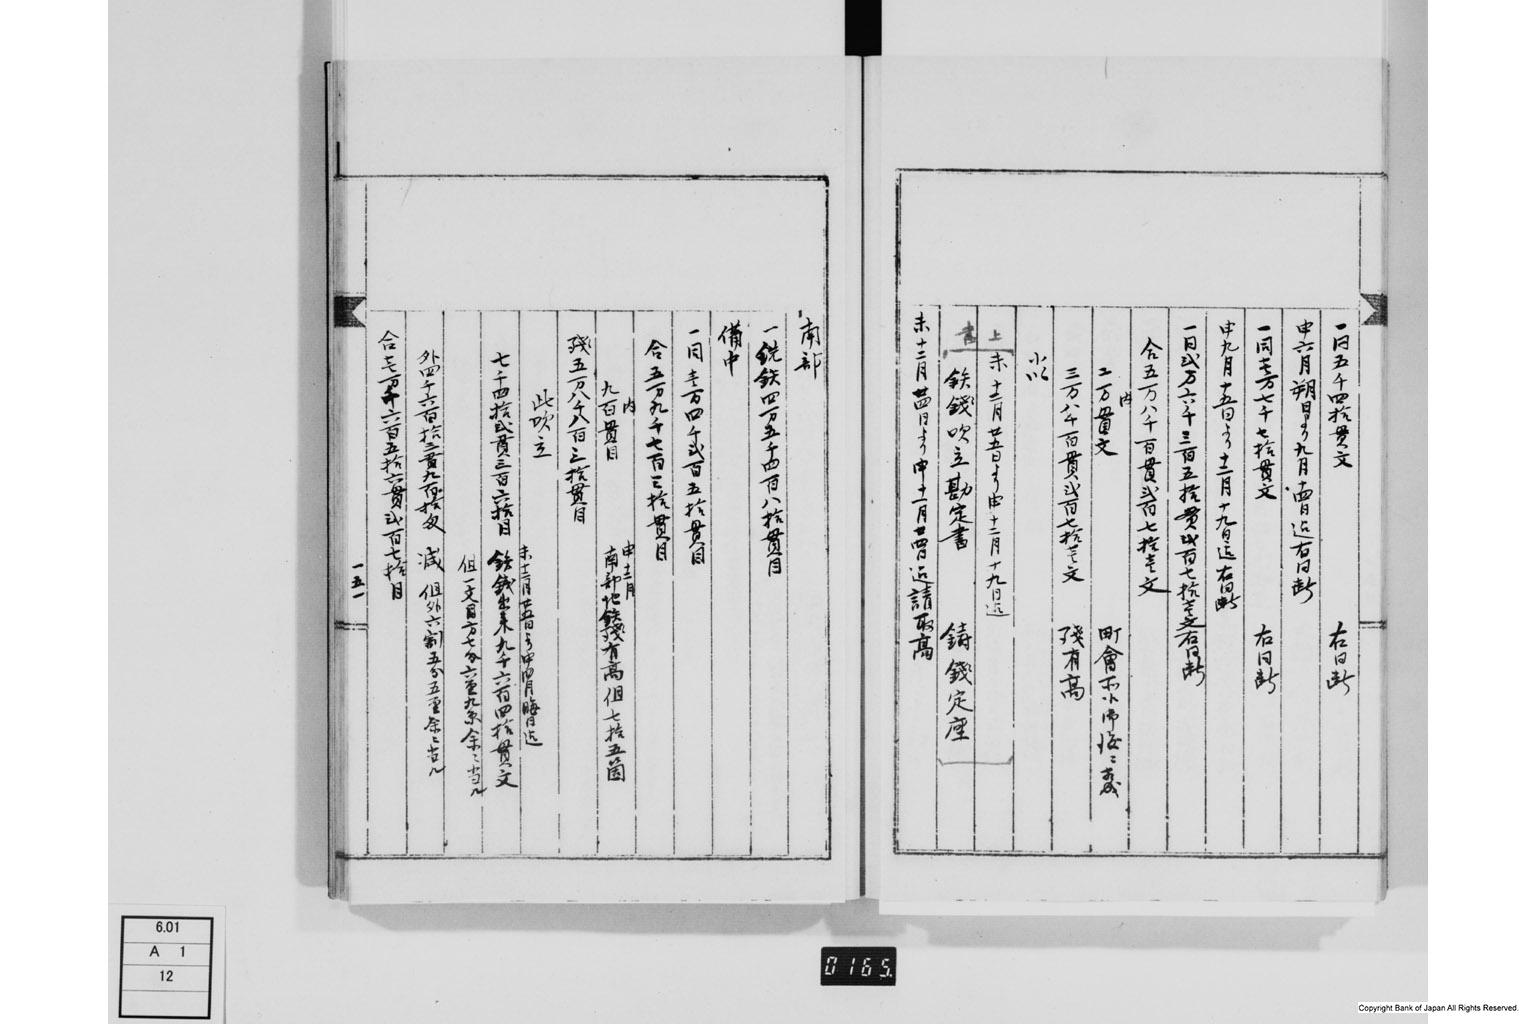 一同五千四拾貫文　右同断
申六月朔日より九月十四日迄右同断
一同壱万七千七拾貫文　右同断
申九月十五日より十二月十九日迄右同断
一同弐万六千三百五拾貫弐百七拾壱文右同断
合五万八千百貫弐百七拾壱文
内
二万貫文　町會所
三万八千百貫弐百七拾壱文　残有高
小以
上書
未十二月廿五日より申十二月十九日迄
鉄錢吹立勘定書　鋳錢定座
未十二月廿四日より申十二月廿四日迄請取高
南部
一銑鉄四万五千四百八拾貫目
備中
一同壱万四千弐百五拾貫目
合五万九千七百三拾貫目
内
九百貫目　申十二月
南部地鉄残有高但七拾五箇
残五万八千八百三拾貫目
此吹立
未十二月廿五日より申四月晦日迄
七千四拾弐貫三百六拾目　鉄錢出来九千六百四拾貫文
但一文目方七分六厘九糸余ニ当ル
外四千六百拾三貫九百拾匁　減但外六割五分五厘余ニ当ル
合壱万千六百五拾六貫弐百七拾目
一五一
6.01
A 1
12
0165
Copyright Bank of Japan All Rights Reserved.